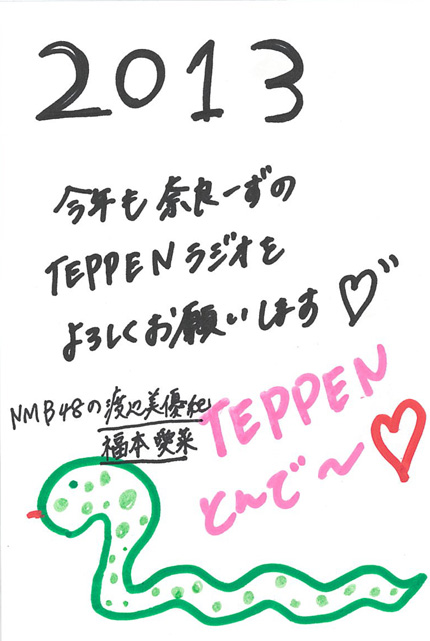 2013
今年も奈良一ずの
TEPPENラジオを
よろしくお願いします♡
NMB48の渡辺美優紀
福本愛菜
TEPPEN
とんで〜♡